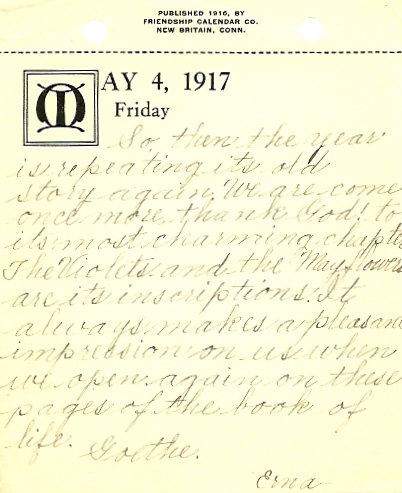 PUBLISHED 1916, BY
FRIENDSHIP CALENDAR CO.
NEW BRITAIN, CONN.
MAY 4, 1917
Friday
So, then the year
is repeating its old
story again. We are come
once more, thank God! to
its most charming chapter
The Violets and the Mayflowers
are its inscriptions. It
always makes a pleasant
impression on us when
we open again on these
pages of the book of
life. Goethe.
Erna